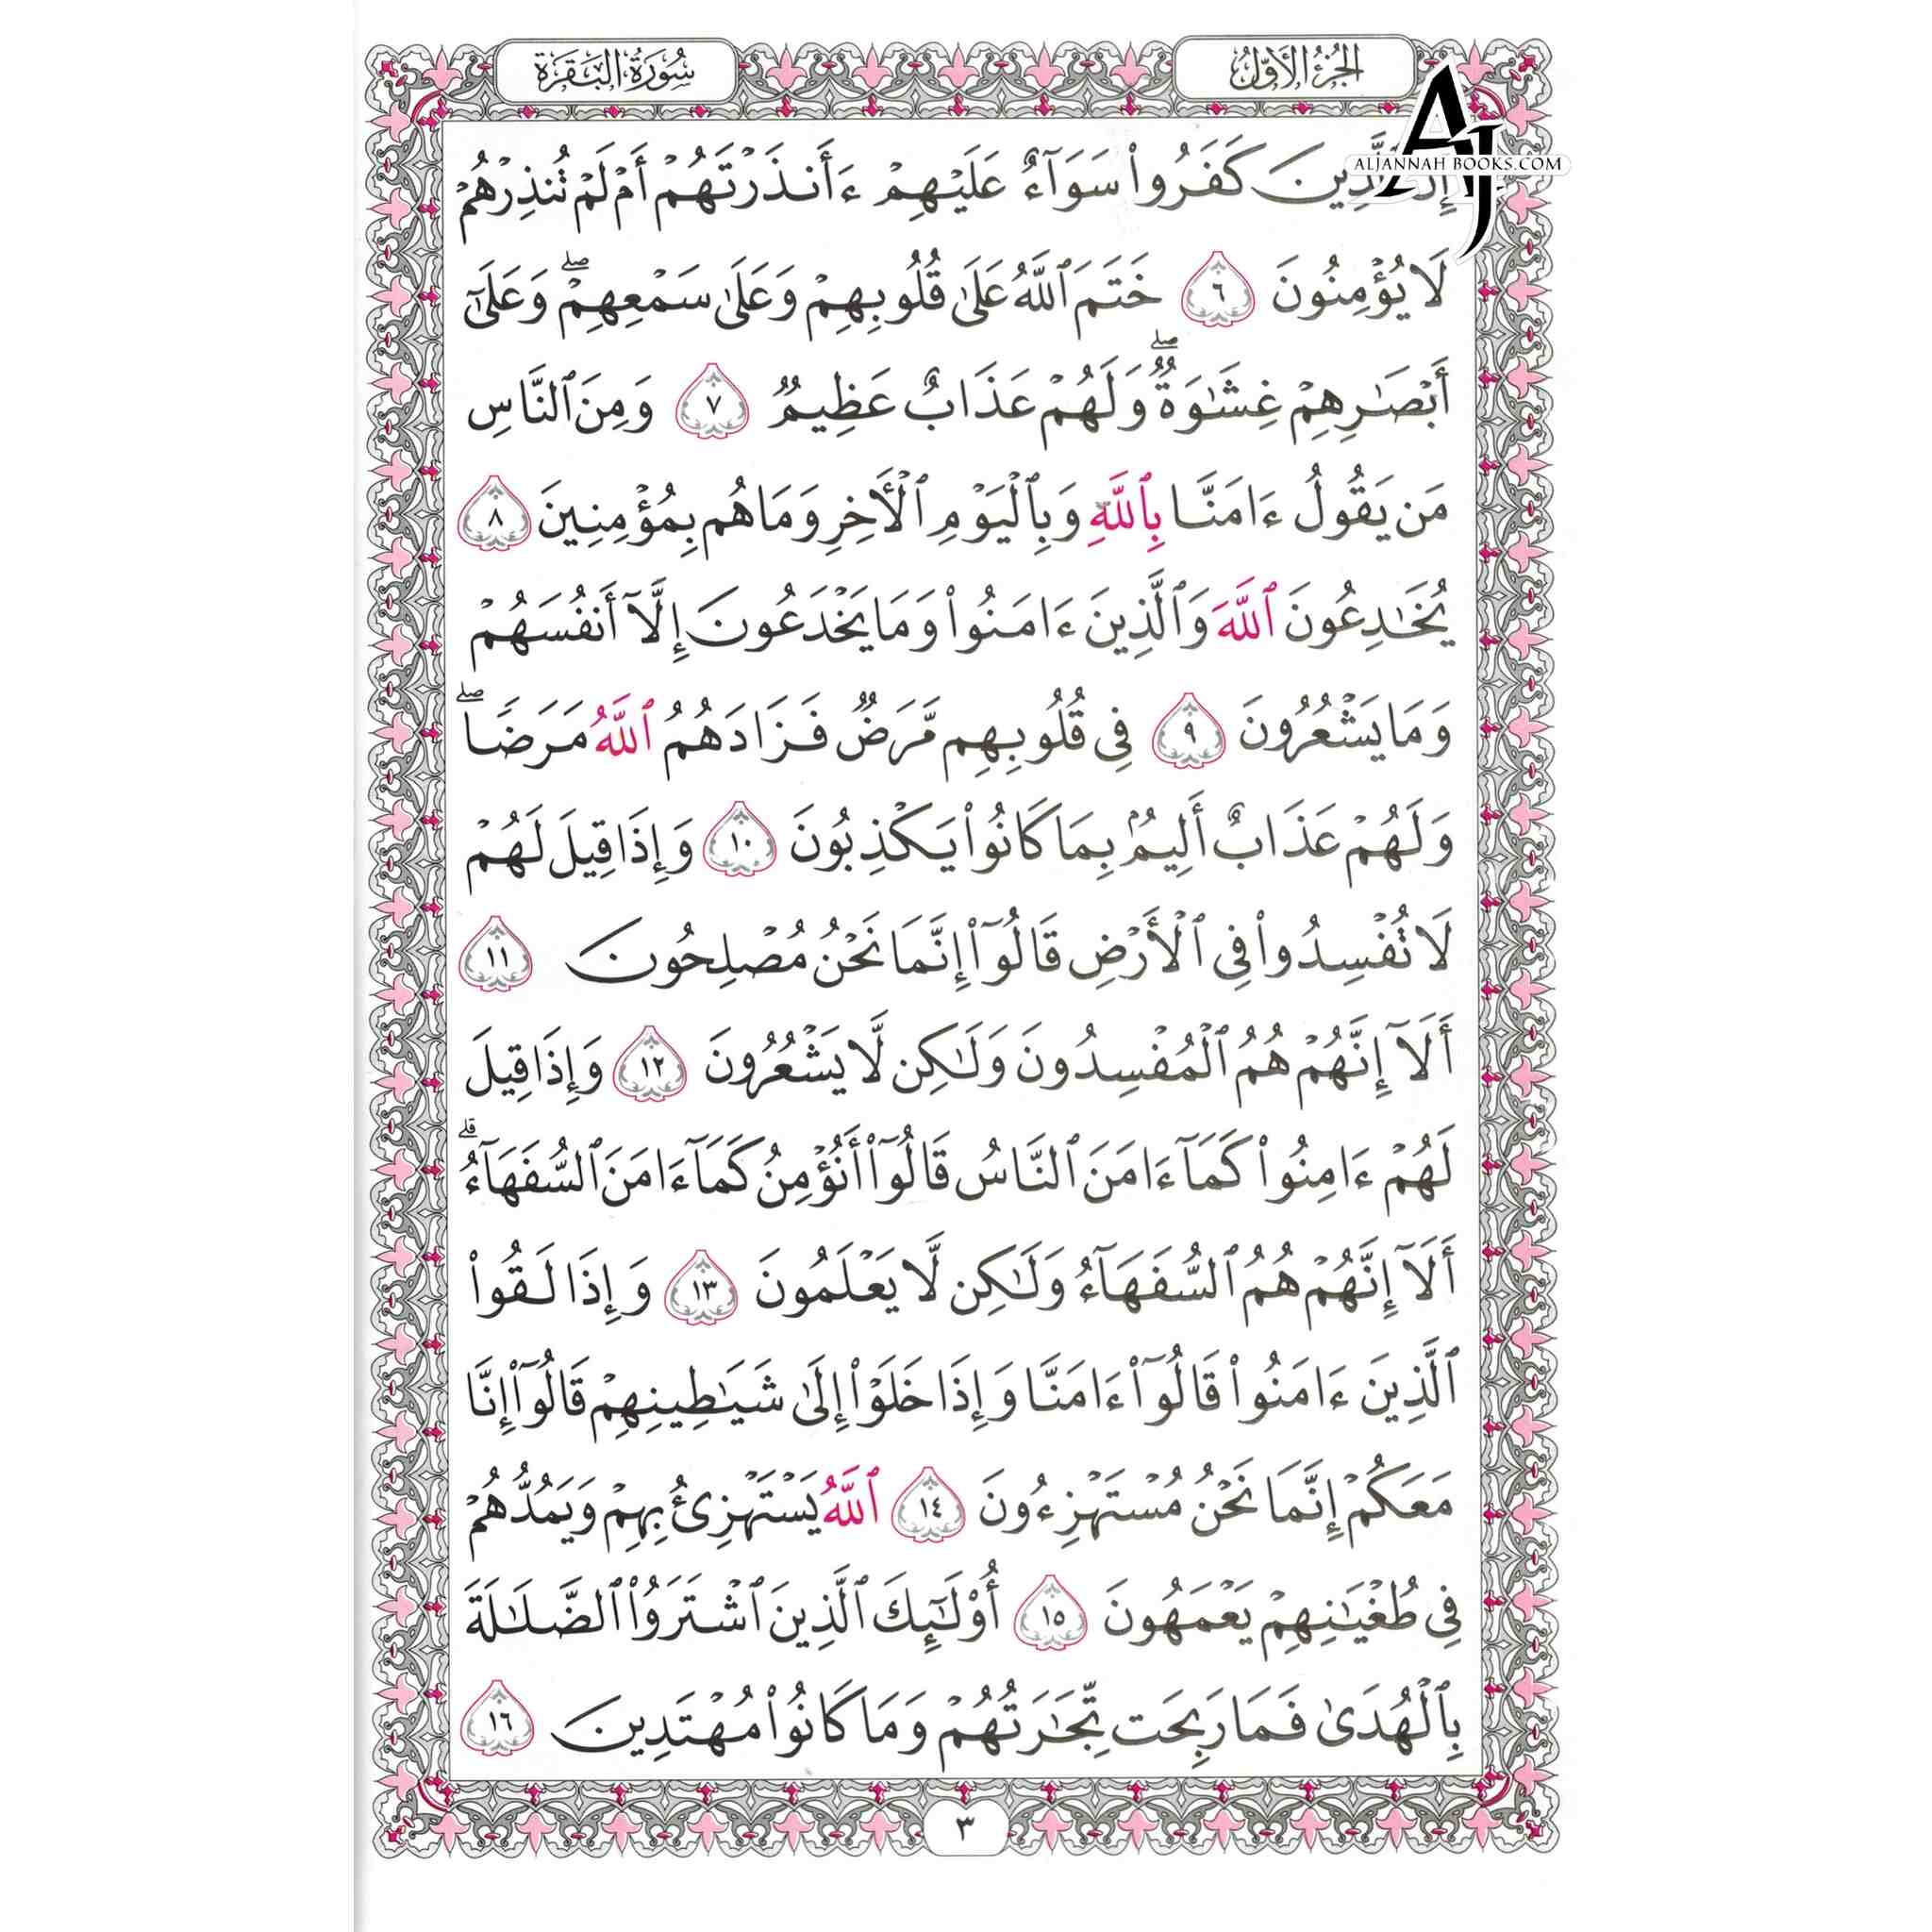 الجزء الأول
سورة البقرة
ALJANNAH BOOKS.COM
إِنَّ ٱلَّذِينَ كَفَرُوا۟ سَوَآءٌ عَلَيْهِمْ ءَأَنذَرْتَهُمْ أَمْ لَمْ تُنذِرْهُمْ
لَا يُؤْمِنُونَ ٦ خَتَمَ ٱللَّهُ عَلَىٰ قُلُوبِهِمْ وَعَلَىٰ سَمْعِهِمْ ۖ وَعَلَىٰٓ
أَبْصَـٰرِهِمْ غِشَـٰوَةٌ ۖ وَلَهُمْ عَذَابٌ عَظِيمٌ ٧ وَمِنَ ٱلنَّاسِ
مَن يَقُولُ ءَامَنَّا بِٱللَّهِ وَبِٱلْيَوْمِ ٱلْـَٔاخِرِ وَمَا هُم بِمُؤْمِنِينَ ٨
يُخَـٰدِعُونَ ٱللَّهَ وَٱلَّذِينَ ءَامَنُوا۟ وَمَا يَخْدَعُونَ إِلَّآ أَنفُسَهُمْ
وَمَا يَشْعُرُونَ ٩ فِى قُلُوبِهِم مَّرَضٌ فَزَادَهُمُ ٱللَّهُ مَرَضًا ۖ
وَلَهُمْ عَذَابٌ أَلِيمٌۢ بِمَا كَانُوا۟ يَكْذِبُونَ ١٠ وَإِذَا قِيلَ لَهُمْ
لَا تُفْسِدُوا۟ فِى ٱلْأَرْضِ قَالُوٓا۟ إِنَّمَا نَحْنُ مُصْلِحُونَ ١١
أَلَآ إِنَّهُمْ هُمُ ٱلْمُفْسِدُونَ وَلَـٰكِن لَّا يَشْعُرُونَ ١٢ وَإِذَا قِيلَ
لَهُمْ ءَامِنُوا۟ كَمَآ ءَامَنَ ٱلنَّاسُ قَالُوٓا۟ أَنُؤْمِنُ كَمَآ ءَامَنَ ٱلسُّفَهَآءُ ۗ
أَلَآ إِنَّهُمْ هُمُ ٱلسُّفَهَآءُ وَلَـٰكِن لَّا يَعْلَمُونَ ١٣ وَإِذَا لَقُوا۟
ٱلَّذِينَ ءَامَنُوا۟ قَالُوٓا۟ ءَامَنَّا وَإِذَا خَلَوْا۟ إِلَىٰ شَيَـٰطِينِهِمْ قَالُوٓا۟ إِنَّا
مَعَكُمْ إِنَّمَا نَحْنُ مُسْتَهْزِءُونَ ١٤ ٱللَّهُ يَسْتَهْزِئُ بِهِمْ وَيَمُدُّهُمْ
فِى طُغْيَـٰنِهِمْ يَعْمَهُونَ ١٥ أُو۟لَـٰٓئِكَ ٱلَّذِينَ ٱشْتَرَوُا۟ ٱلضَّلَـٰلَةَ
بِٱلْهُدَىٰ فَمَا رَبِحَت تِّجَـٰرَتُهُمْ وَمَا كَانُوا۟ مُهْتَدِينَ ١٦
٣